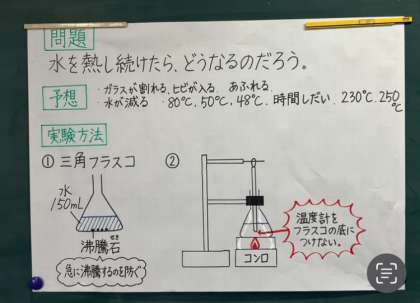 問題
水を熱し続けたら、どうなるのだろう。
予想
・ガラスが割れる、ヒビが入る あふれる
・水が減る ・80℃、50℃、48℃、時間しだい、230℃、250℃
実験方法
① 三角フラスコ
水
150mL
沸騰石
せき
急に沸騰するのを防ぐ
②
温度計を
フラスコの底に
つけない。
コンロ